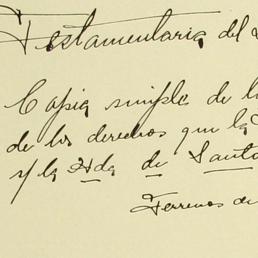 Testamentaria del
Copia simple de l
de los derechos que la
y la Hda de Santa
Terrenos de